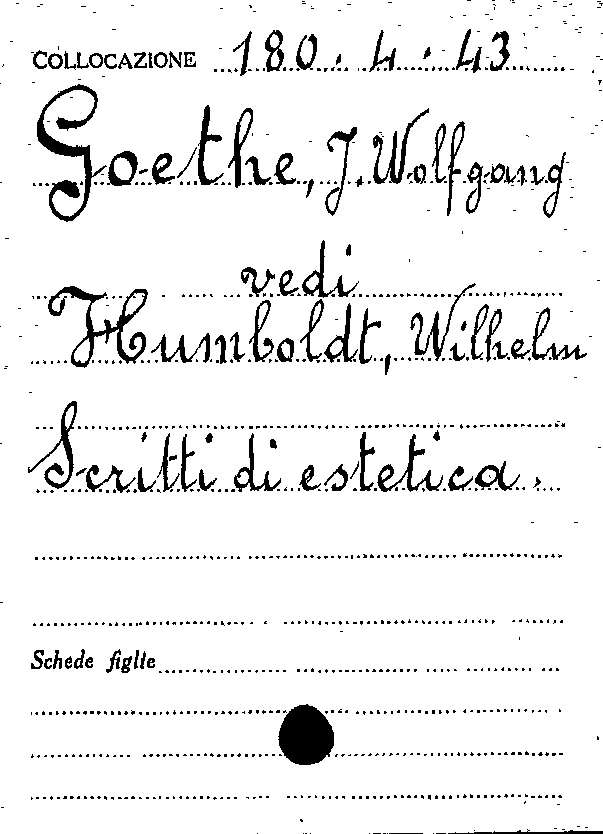 COLLOCAZIONE 180.4.43
Goethe, J. Wolfgang
vedi
Humboldt, Wilhelm
Scritti di estetica.
Schede figlie